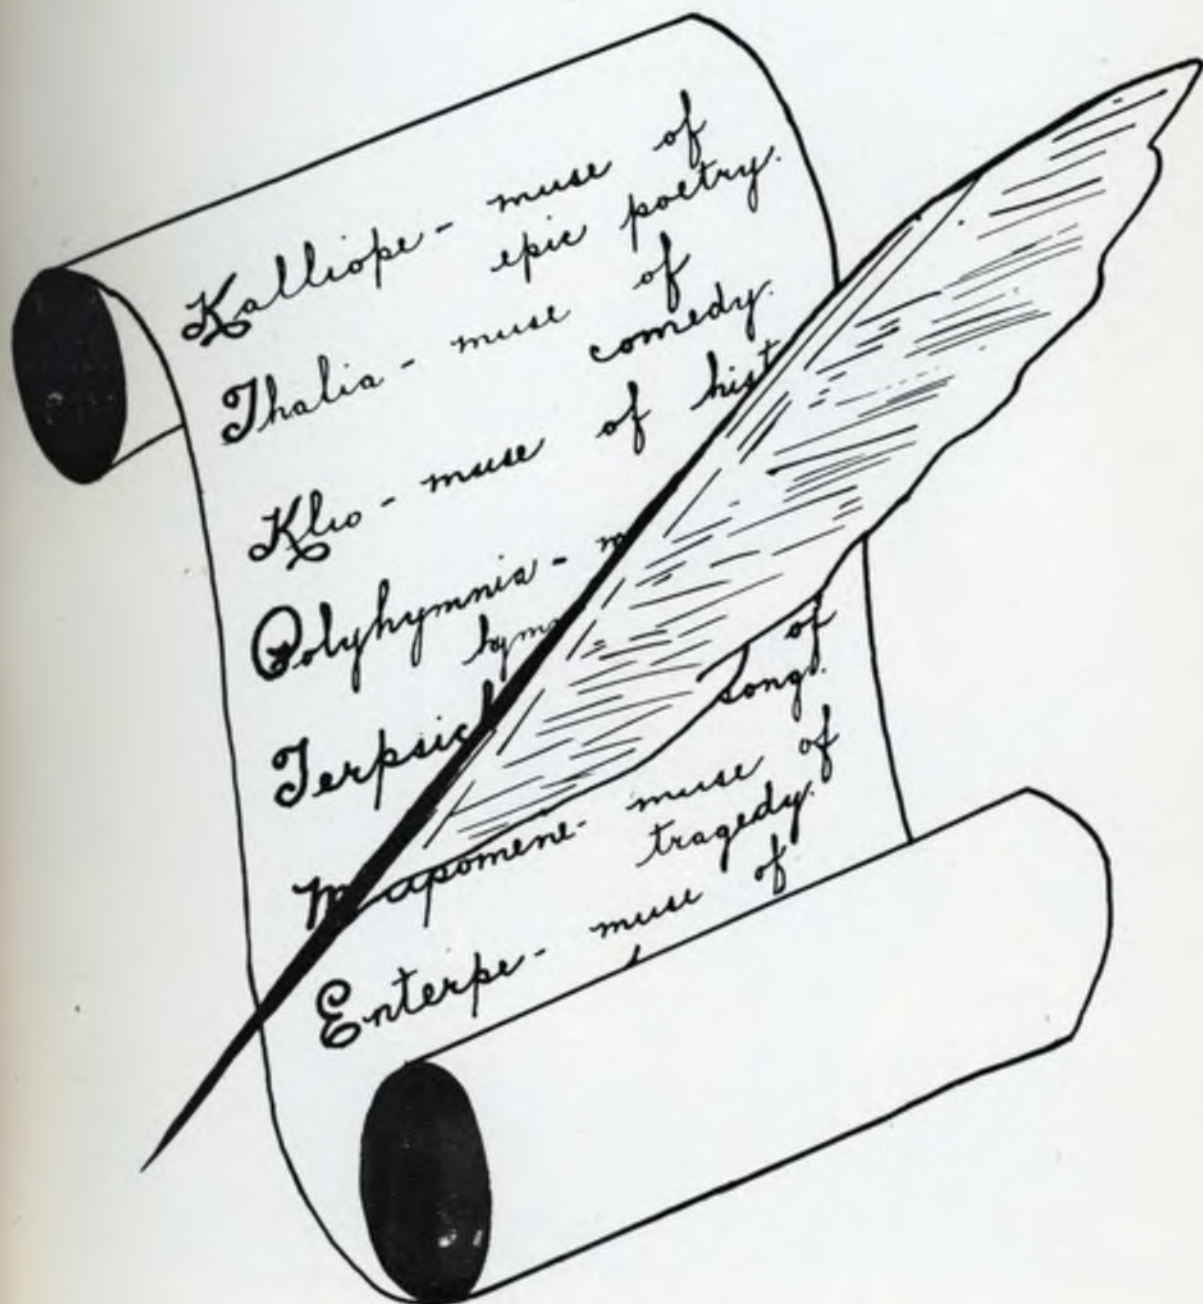 Kalliope - muse of
epic poetry.
Thalia - muse of
comedy.
Klio - muse of hist
Polyhymnia - m
hym
Terpsich of
song.
M apomene - muse of
tragedy.
Enterpe - muse of